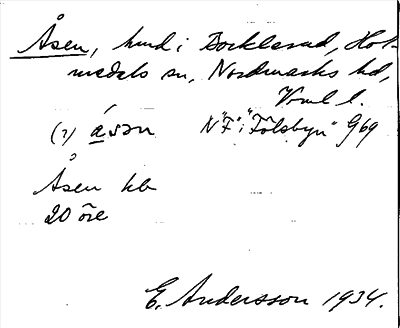 Åsen, hmd i Bocklerud, Hol-
medals sn, Nordmarks hd,
Vrml l.
(?) åsən N"F" i "Fölsbyn" G69
Åsen hb
20 öre
E. Andersson 1934.